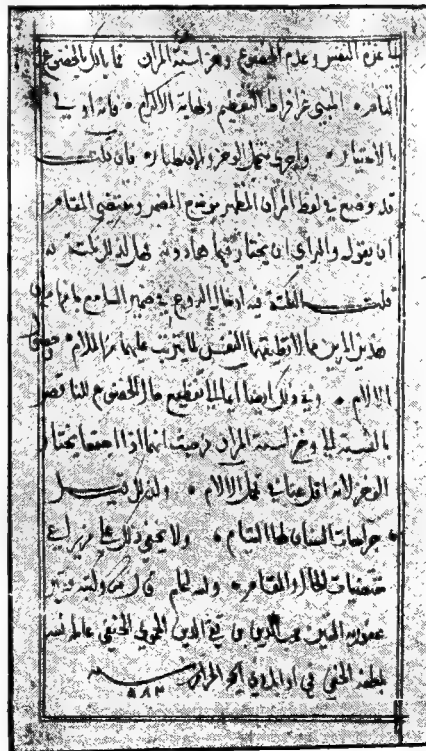 عزة النفس وعدم الخضوع وخز اسنة المران فما بال الخضوع
التام المبني عن افراط التعظيم ونهاية الاكرام فانه اولى
بالاختيار واحرى بتحمل الوخز والاصطبار فان قلت
قد وضع في لفظ المران المظهر موضع المضمر ومقتضى المقام
ان يقول والراي ان يختار فيما هادونه فهل لذلك نكتة
قلت النكتة فيه ادخال الروع في ضمير السامع
هذين الامرين مما لا تطيقهما النفس لما يترتب عليهما من الالام
الالام وفي ذلك ايضا ايما الى تفظيع حال الخضوع للناقص
بالنسبة الى وخز اسنة المران من حيث انهما اذا اجتمعا يختار
الوخز لانه اقل عناء في تحمل الالام ولذلك قيل
جراحات السنان لها التيام ولا يخفى ذلك على من يراعي
مقتضيات الحال والمقام والله اعلم قال ذلك وكتبه فقير
عفو ربه محب الدين بن تقي الدين الحموي الحنفي عامله الله
بلطفه الخفي في اوائل ذي الحجة الحرام